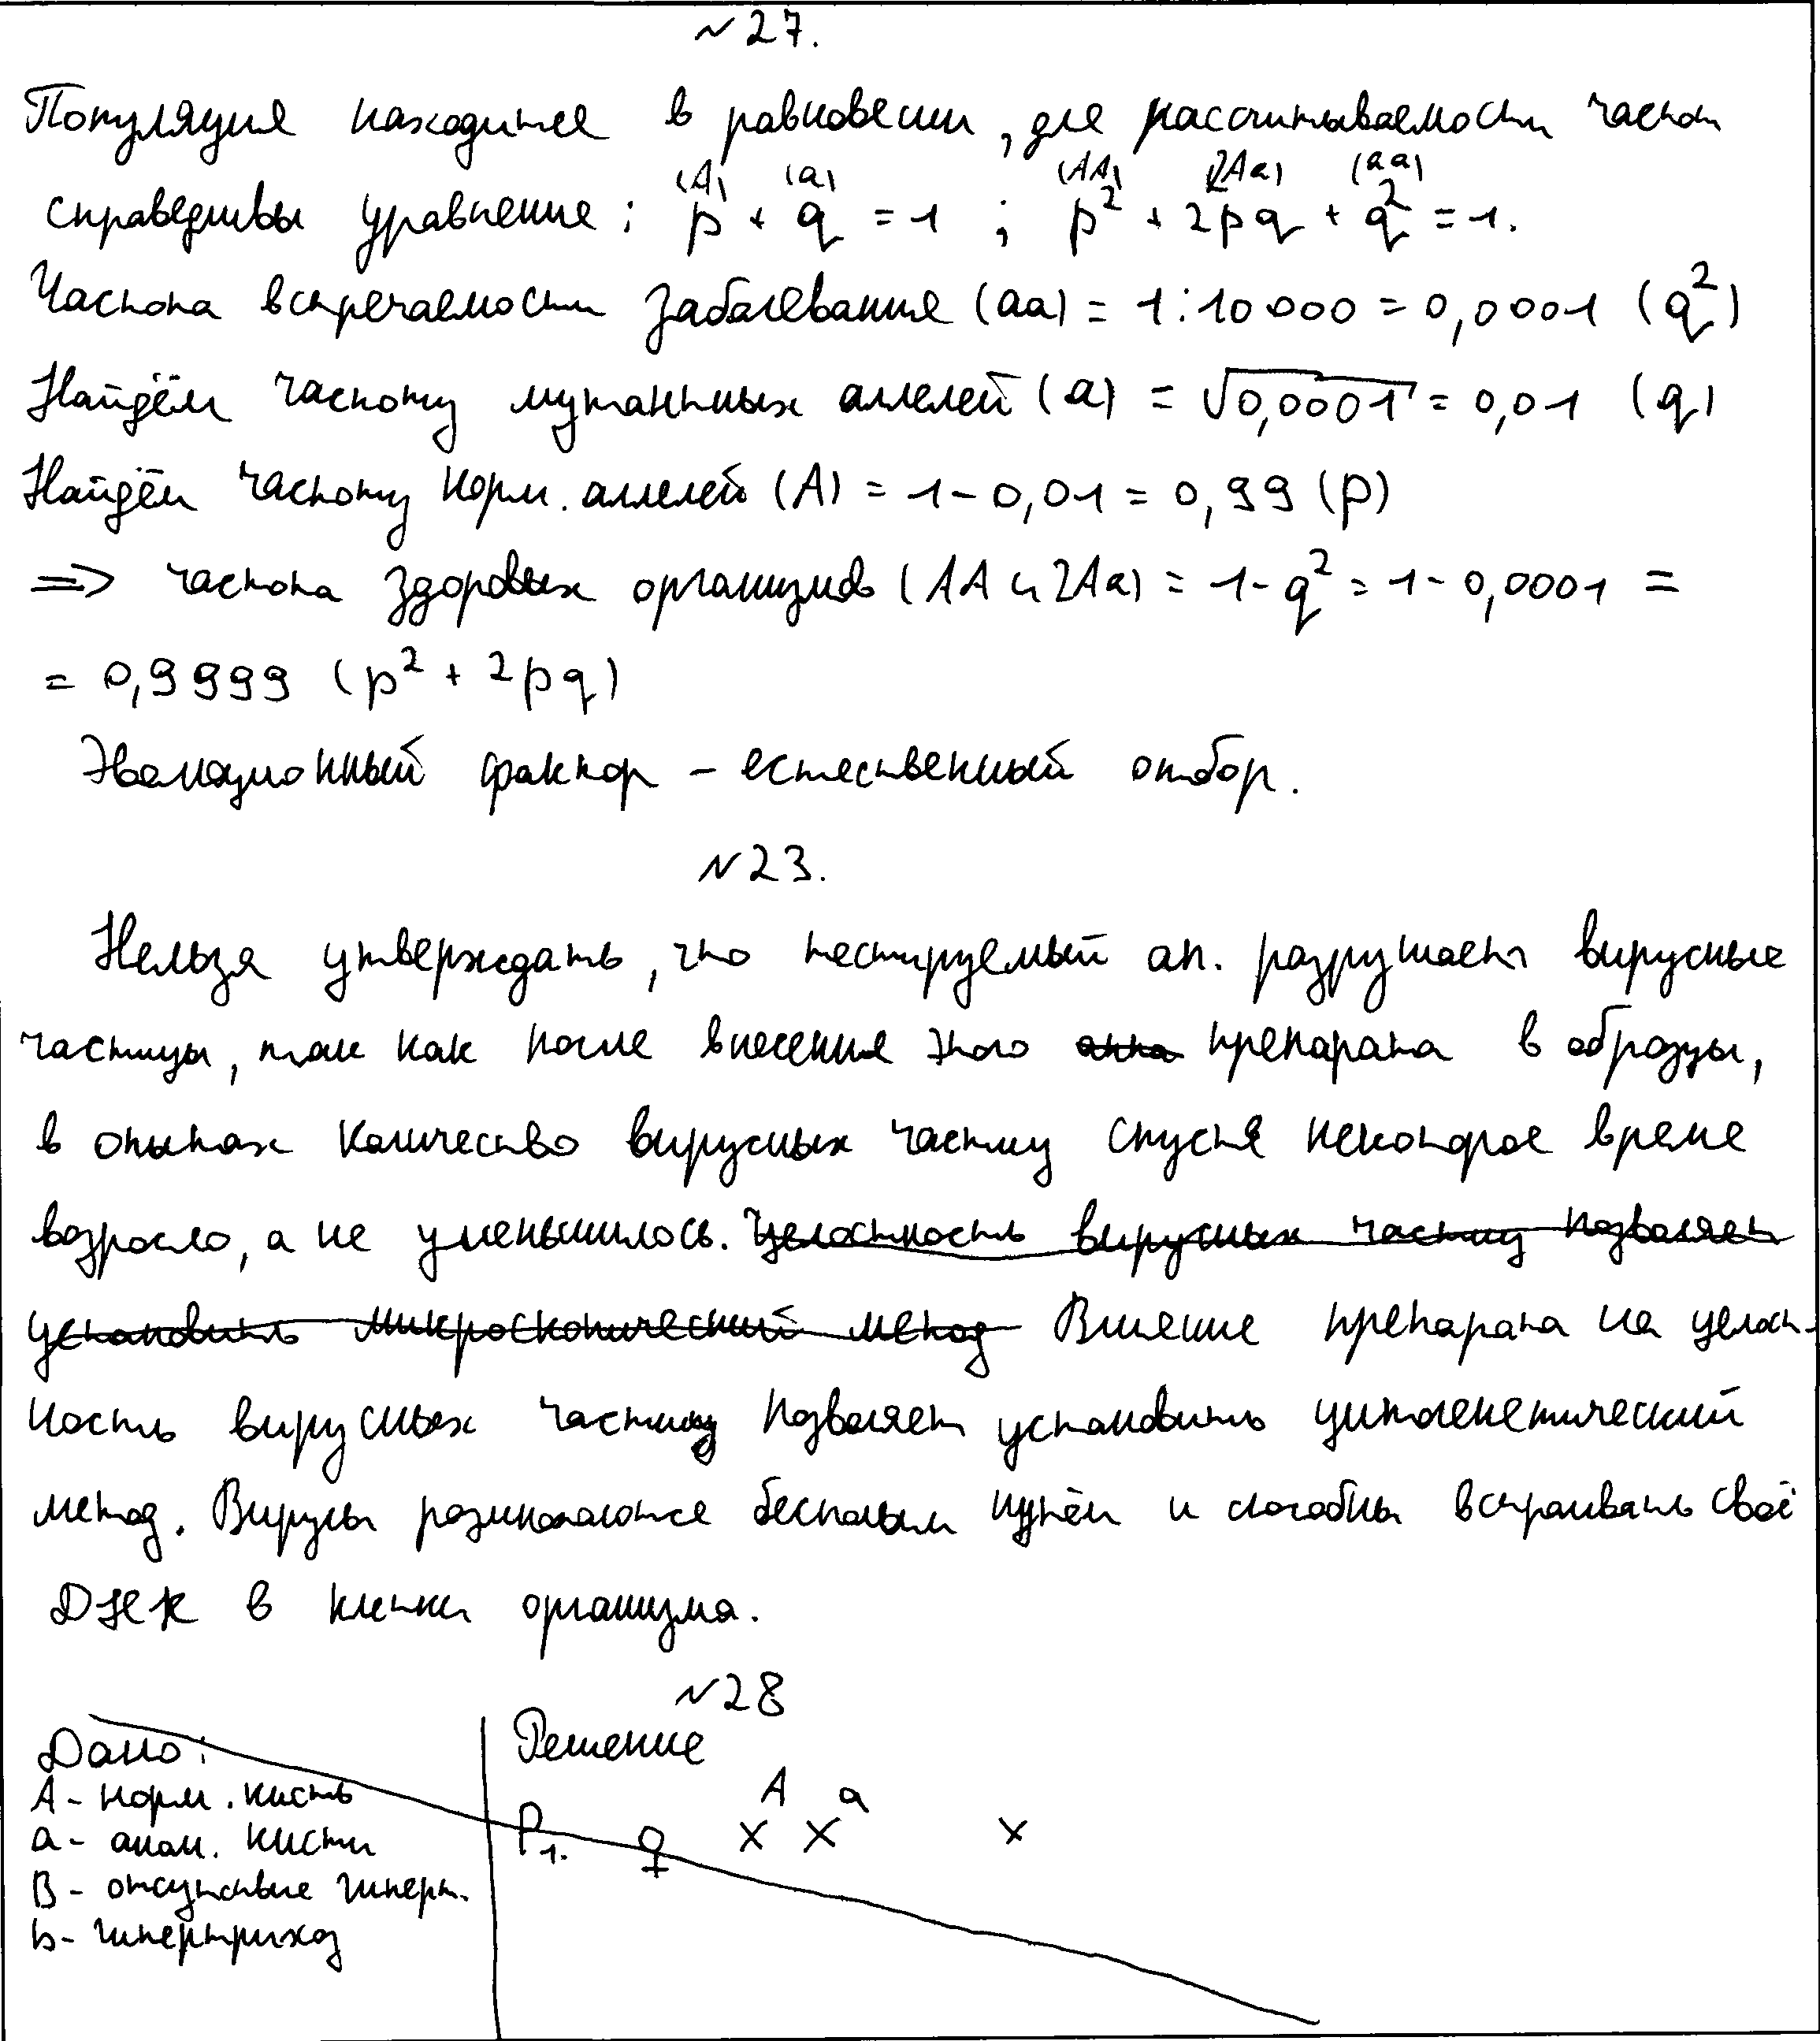 №27.
Популяция находится в равновесии, для рассчитываемости частот
(A) (a) (AA) (2Aa) (aa)
справедливы уравнение: p + q = 1 ; p² + 2pq + q² = 1.
Частота встречаемости заболевания (aa) = 1:10000 = 0,0001 (q²)
Найдём частоту мутантных аллелей (a) = √0,0001 = 0,01 (q)
Найдём частоту норм. аллелей (A) = 1-0,01 = 0,99 (p)
=> частота здоровых организмов (AA и 2Aa) = 1-q² = 1-0,0001 =
= 0,9999 (p² + 2pq)
Эволюционный фактор – естественный отбор.
№23.
Нельзя утверждать, что тестируемый ап. разрушает вирусные
частицы, так как после внесения этого препарата в образцы,
в опытах количество вирусных частиц спустя некоторое время
возросло, а не уменьшилось. Целостность вирусных частиц позволяет
установить микроскопический метод Влияние препарата на целост-
ность вирусных частиц позволяет установить цитогенетический
метод. Вирусы размножаются бесполым путём и способны встраивать своё
ДНК в клетки организма.
№28
Дано:
A - норм. кисть
a - аном. кисти
B - отсутствие гиперт.
b - гипертрихоз
Решение
A a
P1. ♀ X X x